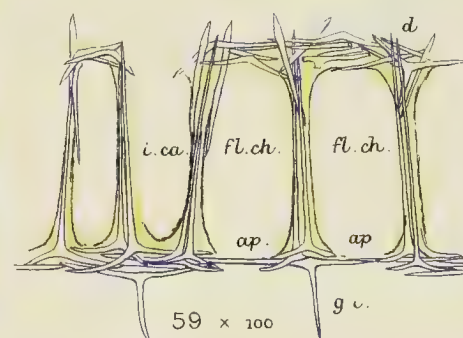 d
i.ca. fl.ch. fl.ch.
ap. ap
g
59 × 100